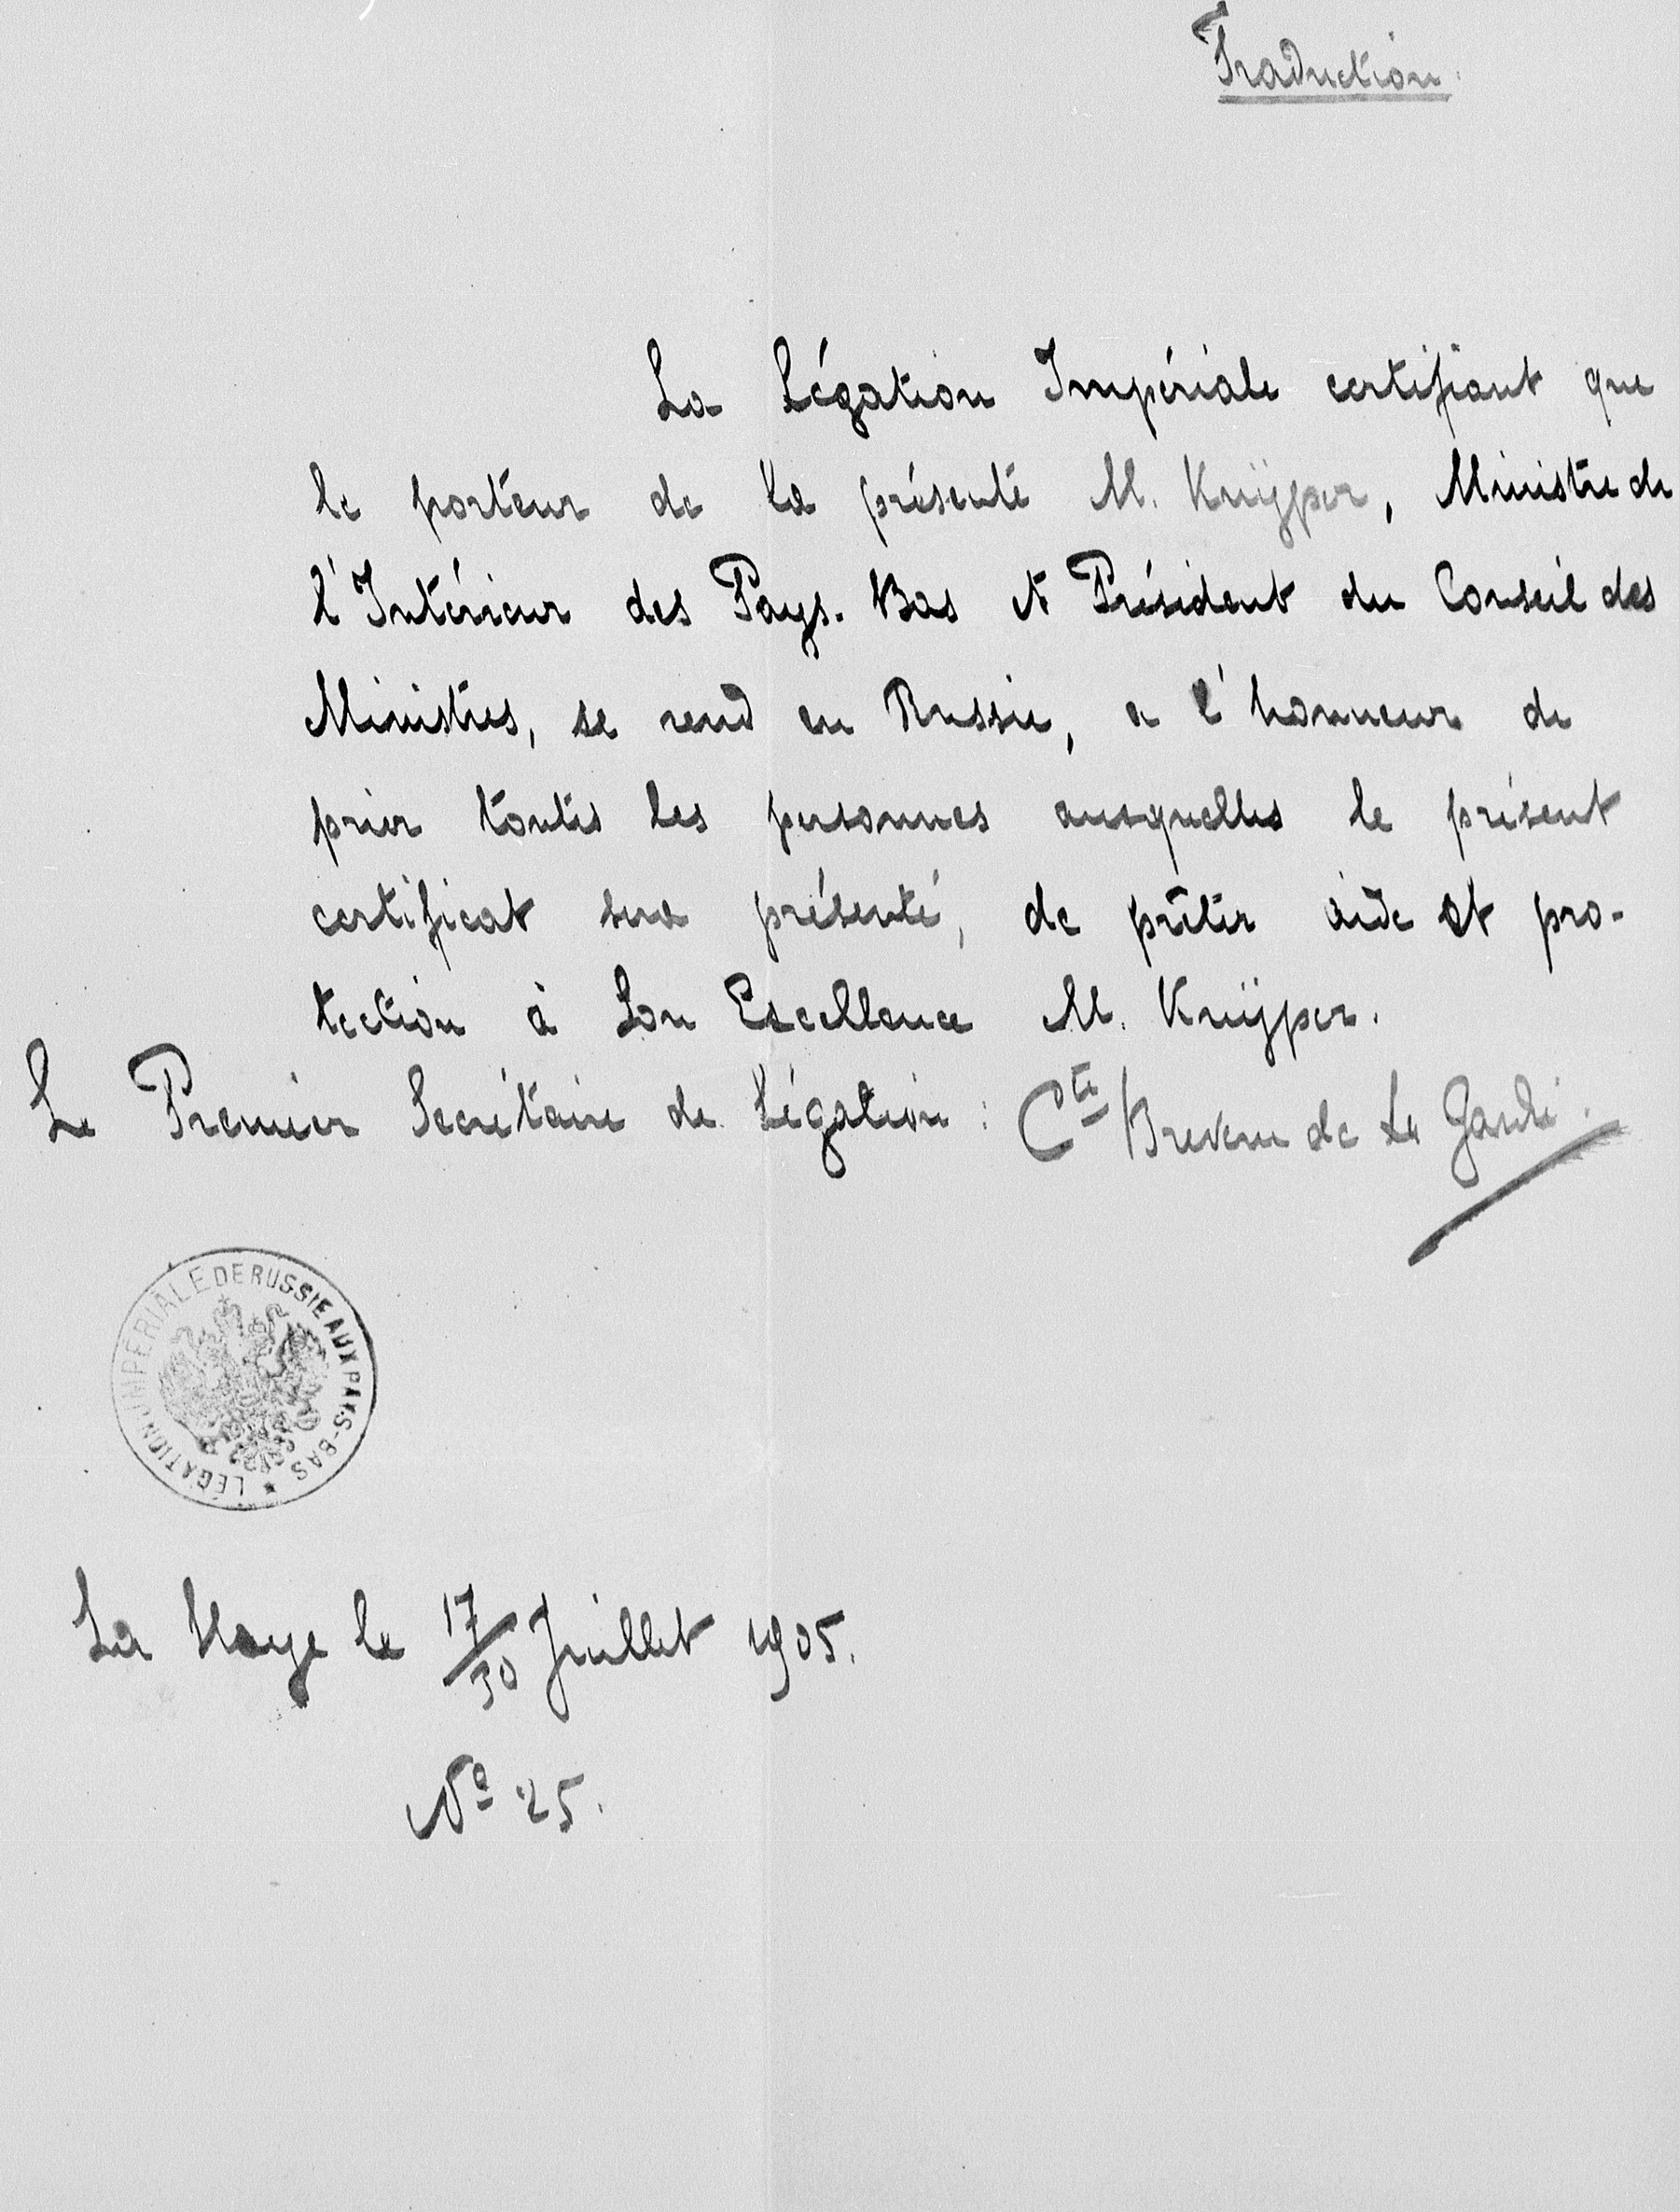 Traduction.
La Légation Impériale certifiant que
le porteur de la présente M. Kuÿper, Ministre de
l'Intérieur des Pays-Bas et Président du Conseil des
Ministres, se rend en Russie, a l'honneur de
prier toutes les personnes auxquelles le présent
certificat sera présenté, de prêter aide et pro-
tection à Son Excellence M. Kuÿper.
Le Premier Secrétaire de Légation: Cte Brevern de La Gardie.
LÉGATION IMPÉRIALE DE RUSSIE AUX PAYS-BAS
La Haye le 17/30 Juillet 1905.
No 25.